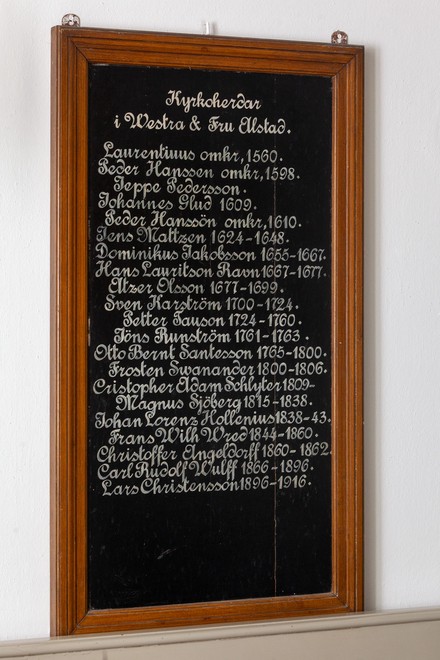 Kyrkoherdar
i Westra & Fru Alstad.
Laurentiuus omkr, 1560.
Peder Hanssen omkr, 1598.
Jeppe Pedersson.
Johannes Glud 1609.
Peder Hanssön omkr, 1610.
Jens Maltzen 1624-1648.
Dominikus Jakobsson 1655-1667.
Hans Lauritson Ravn 1667-1677.
Atzer Olsson 1677-1699.
Sven Karström 1700-1724.
Petter Tauson 1724-1760.
Jöns Runström 1761-1763.
Otto Bernt Santesson 1765-1800.
Frosten Swanander 1800-1806.
Cristopher Adam Schlyter 1809-
Magnus Sjöberg 1815-1838.
Johan Lorenz Hollenius 1838-43.
Frans Wilh Wred 1844-1860.
Christoffer Angeldorff 1860-1862.
Carl Rudolf Wulff 1866-1896.
Lars Christensson 1896-1916.